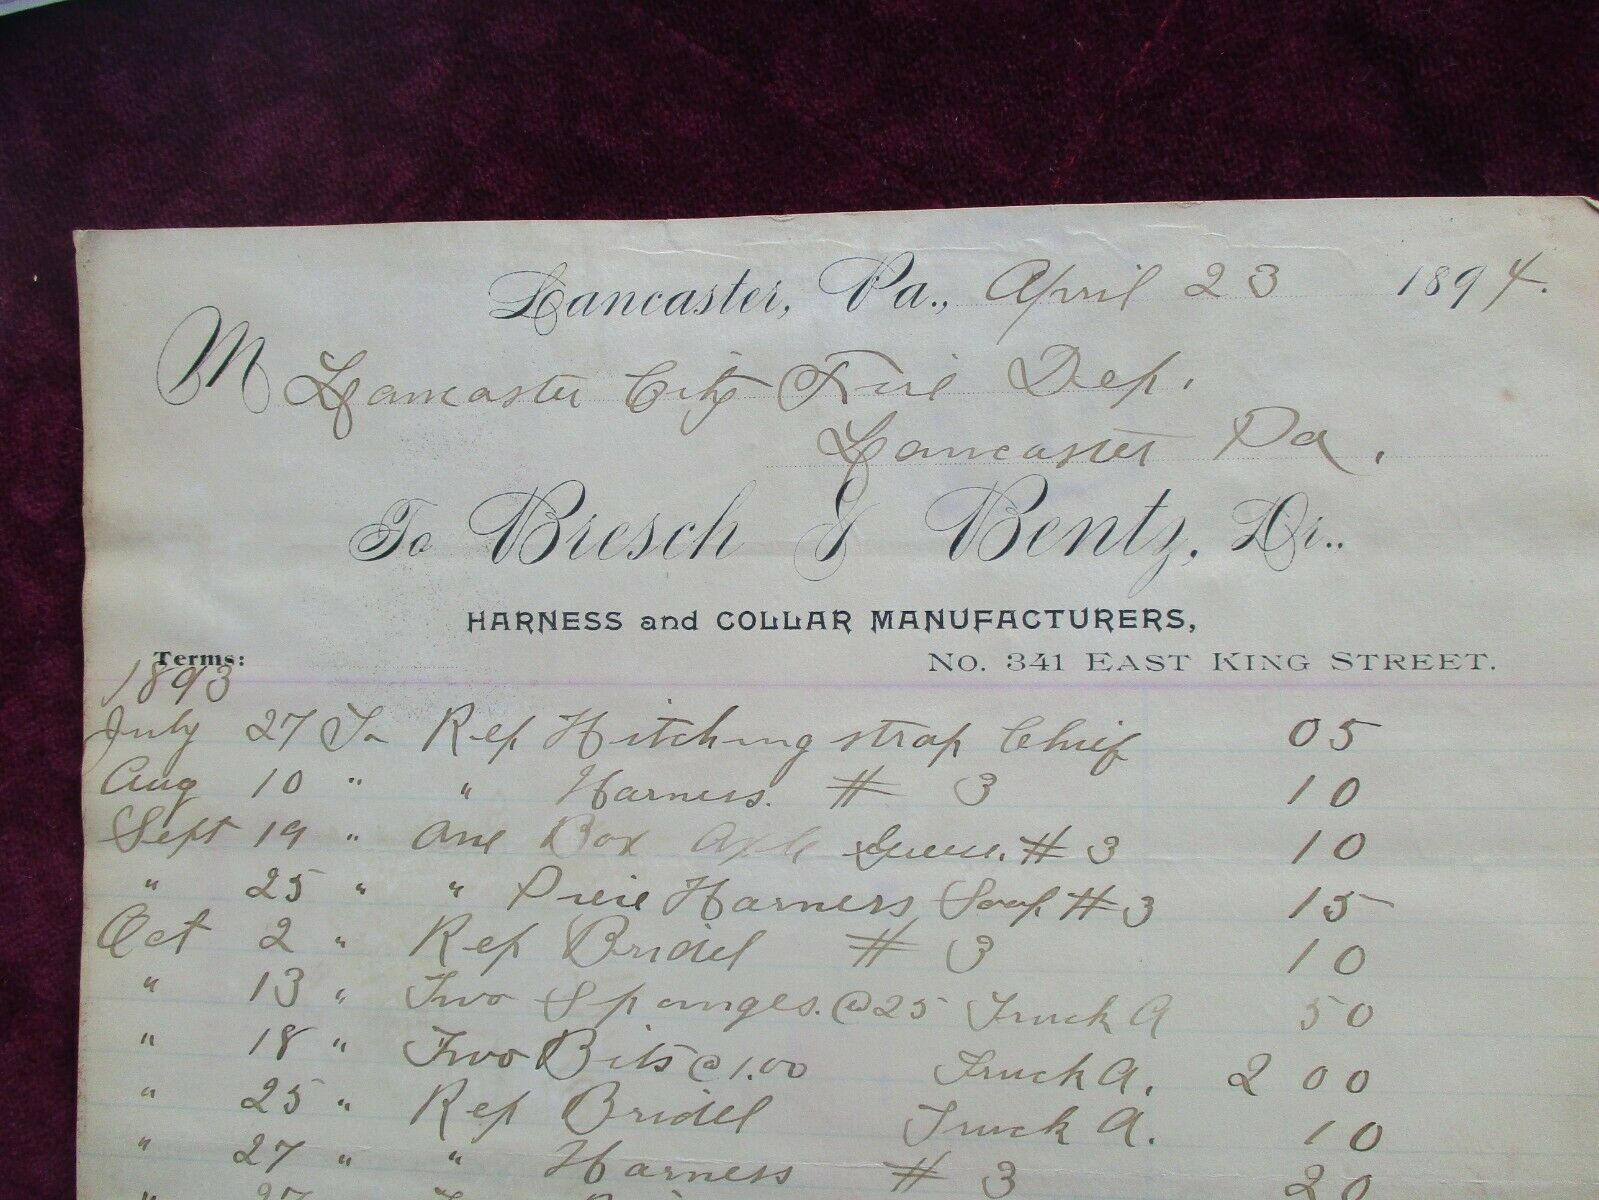 Lancaster, Pa., April 23 1894.
M Lancaster City Fire Dep.
Lancaster Pa.
To Bresch & Bentz, Dr..
HARNESS and COLLAR MANUFACTURERS,
Terms: No. 341 EAST KING STREET.
1893
July 27 To Rep Hitching strap Chief 05
Aug 10 " " Harness. # 3 10
Sept 19 " One Box Axle # 3 10
" 25 " " Harness Soap # 3 15
Oct 2 " Rep Bridel # 3 10
" 13 " Two Sponges. @ 25 Truck A 50
" 18 " Two Bits @ 1.00 Truck A. 2 00
" 25 " Rep Bridel Truck A. 10
" 27 " " Harness # 3 20
" 27